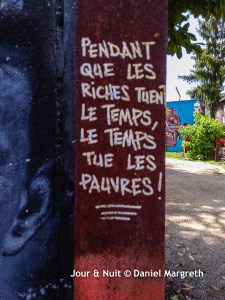 PENDANT
QUE LES
RICHES TUENT
LE TEMPS,
LE TEMPS
TUE LES
PAUVRES !
Jour & Nuit © Daniel Margreth